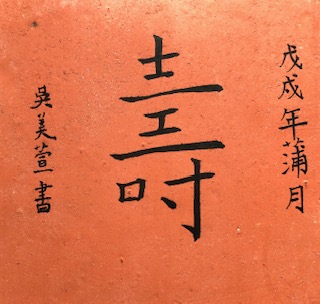 戊戌年蒲月
壽
吳美萱書